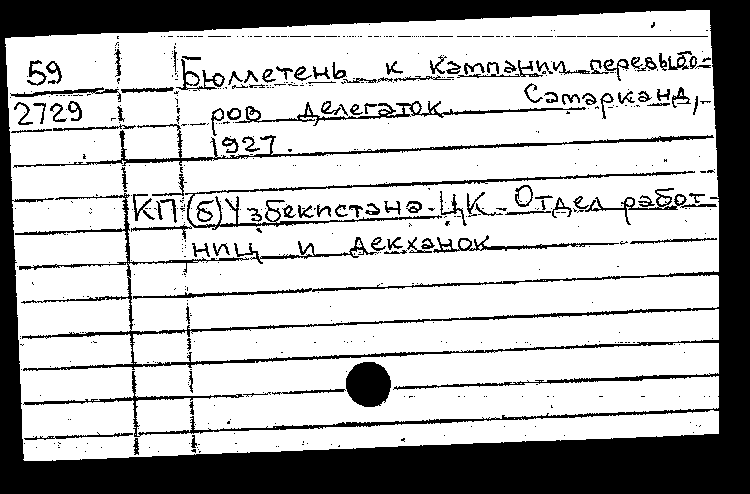 59 Бюллетень к кампании перевыбо-
2729 ров делегаток. Самарканд,
1927.
КП(б)Узбекистана. ЦК. Отдел работ-
ниц и декханок